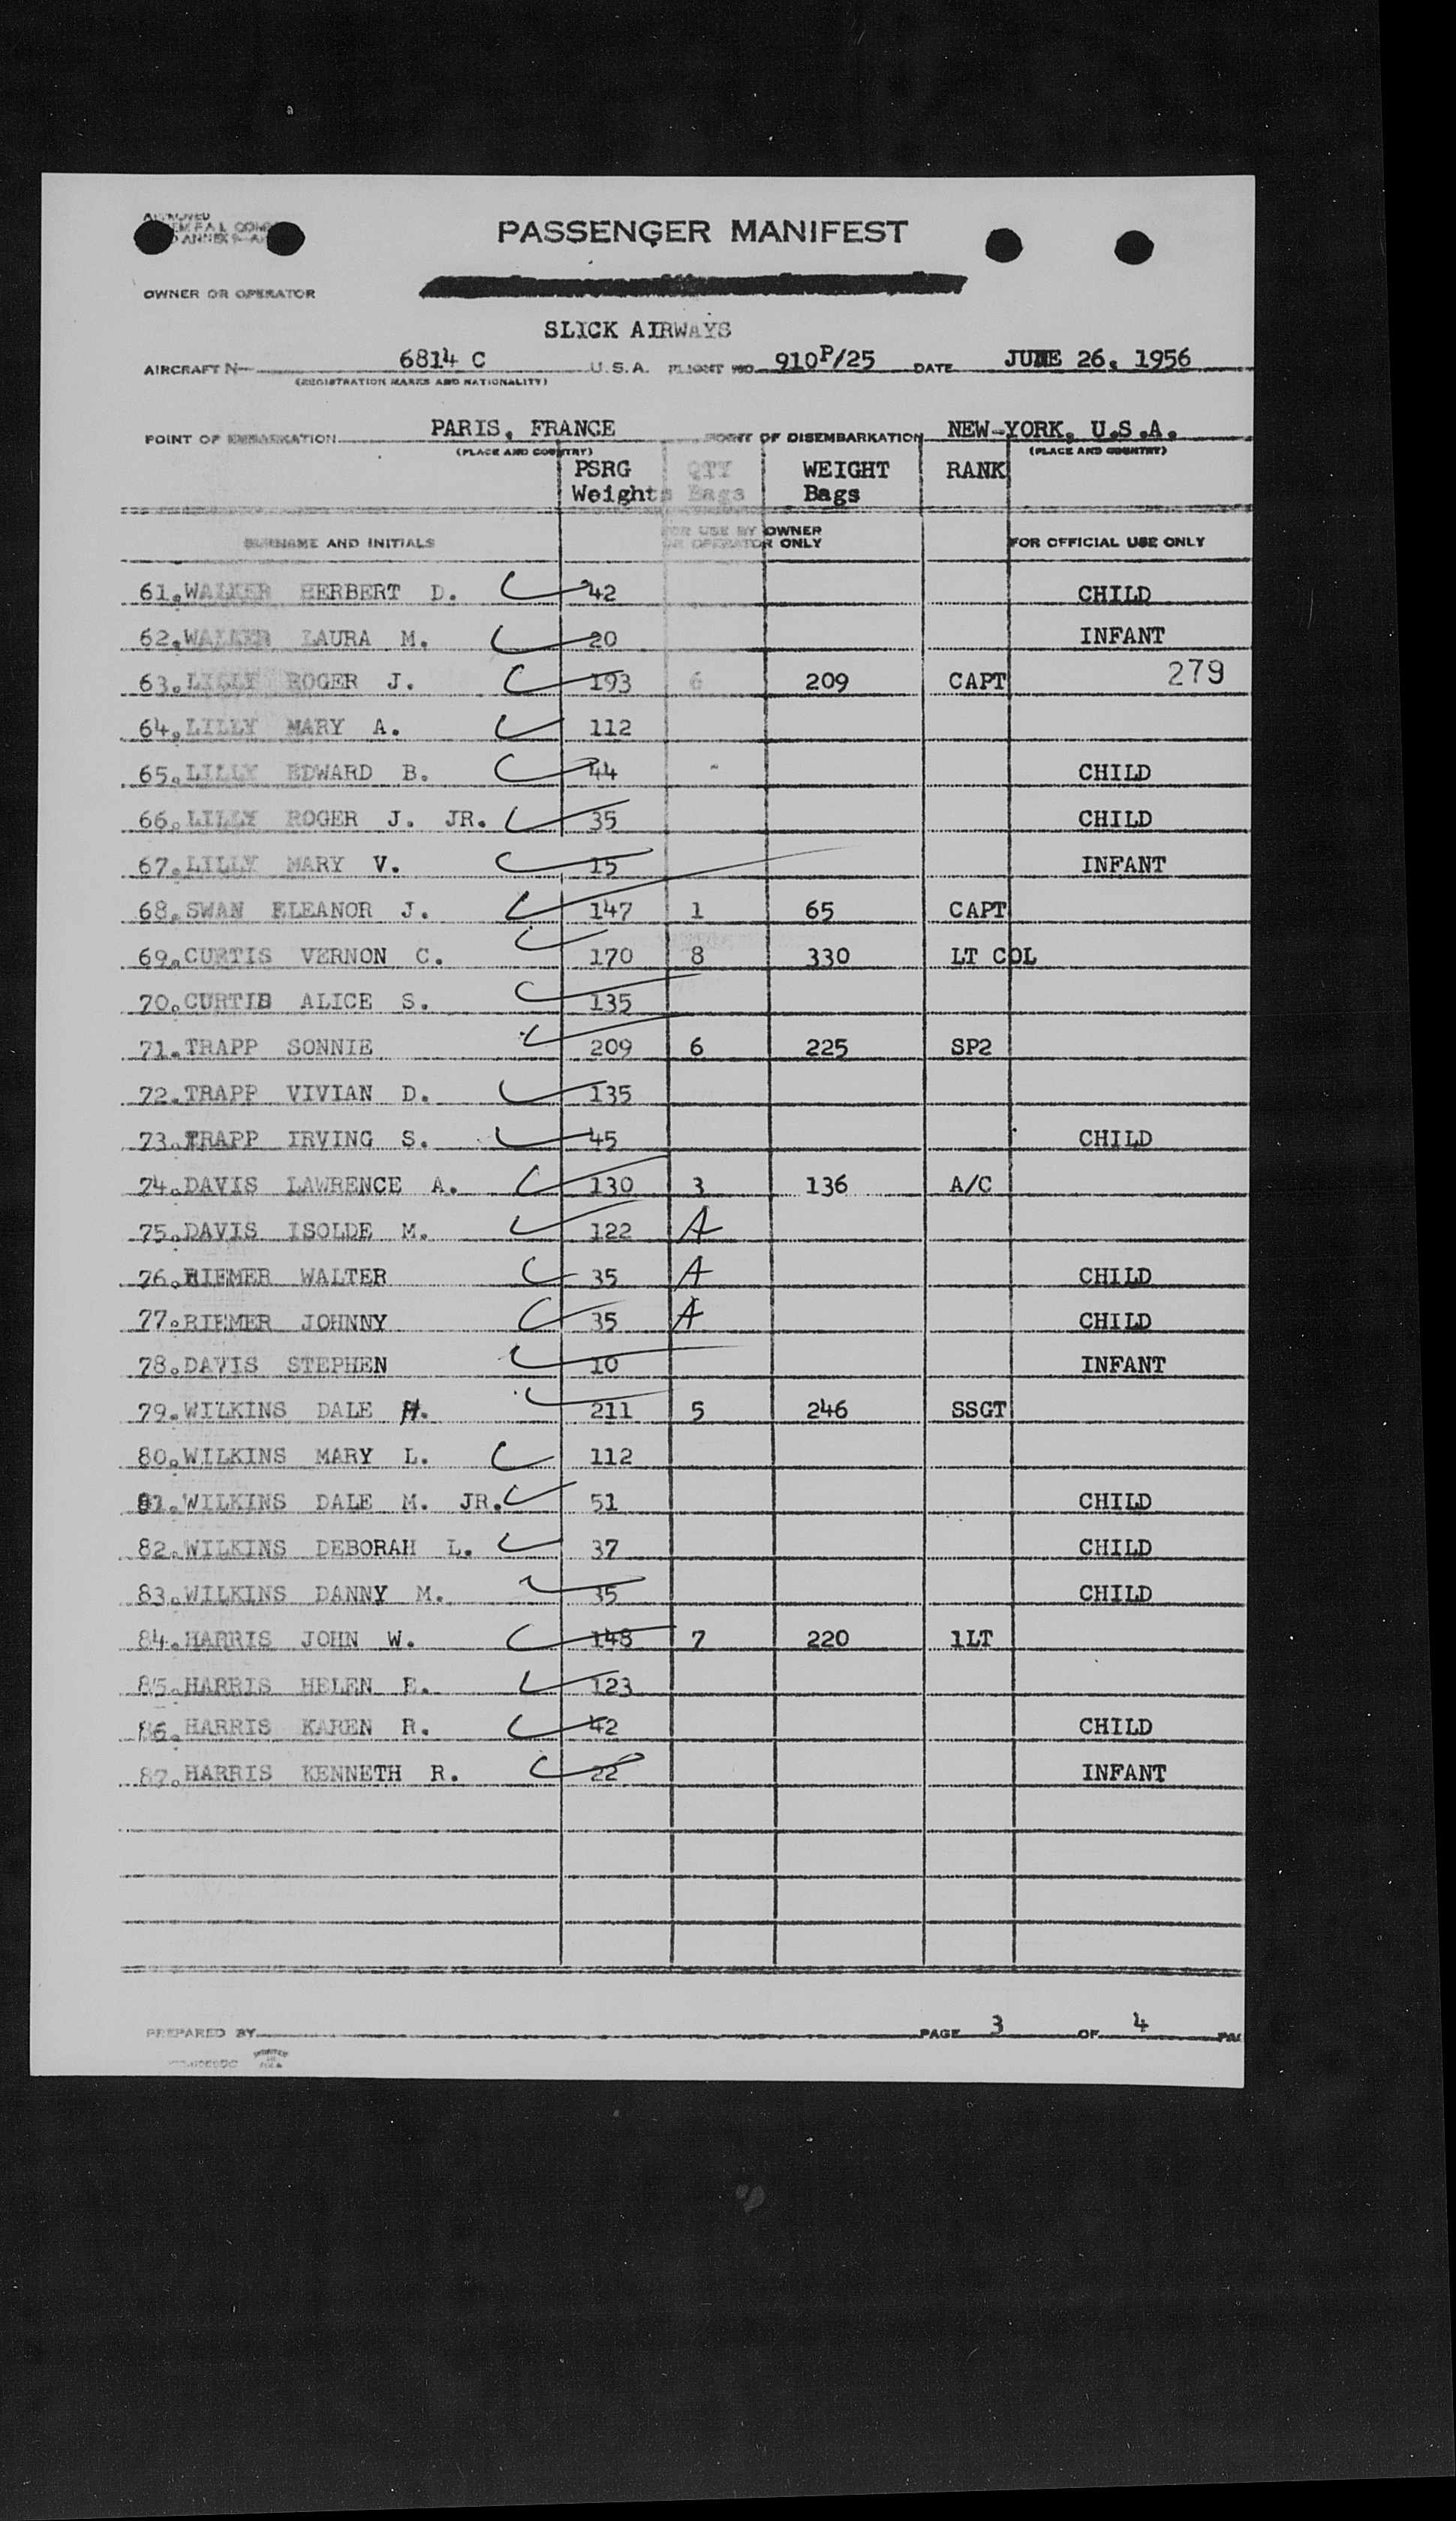 APPROVED
PASSENGER MANIFEST
OWNER OR OPERATOR
SLICK AIRWAYS
AIRCRAFT N 6814 C U.S.A. FLIGHT NO. 910P/25 DATE JUNE 26, 1956
(REGISTRATION MARKS AND NATIONALITY)
POINT OF EMBARKATION PARIS, FRANCE POINT OF DISEMBARKATION NEW-YORK, U.S.A.
(PLACE AND COUNTRY) (PLACE AND COUNTRY)
PSRG QTY WEIGHT RANK
Weights Bags Bags
SURNAME AND INITIALS FOR USE BY OWNER OR OPERATOR ONLY FOR OFFICIAL USE ONLY
61. WALKER HERBERT D. 42 CHILD
62. WALKER LAURA M. 20 INFANT
63. LILLY ROGER J. 193 6 209 CAPT 279
64. LILLY MARY A. 112
65. LILLY EDWARD B. 44 CHILD
66. LILLY ROGER J. JR. 35 CHILD
67. LILLY MARY V. 15 INFANT
68. SWAN ELEANOR J. 147 1 65 CAPT
69. CURTIS VERNON C. 170 8 330 LT COL
70. CURTIS ALICE S. 135
71. TRAPP SONNIE 209 6 225 SP2
72. TRAPP VIVIAN D. 135
73. TRAPP IRVING S. 45 CHILD
74. DAVIS LAWRENCE A. 130 3 136 A/C
75. DAVIS ISOLDE M. 122 A
76. RIEMER WALTER 35 A CHILD
77. RIEMER JOHNNY 35 A CHILD
78. DAVIS STEPHEN 10 INFANT
79. WILKINS DALE M. 211 5 246 SSGT
80. WILKINS MARY L. 112
81. WILKINS DALE M. JR. 51 CHILD
82. WILKINS DEBORAH L. 37 CHILD
83. WILKINS DANNY M. 35 CHILD
84. HARRIS JOHN W. 148 7 220 1LT
85. HARRIS HELEN E. 123
86. HARRIS KAREN R. 42 CHILD
87. HARRIS KENNETH R. 22 INFANT
PREPARED BY PAGE 3 OF 4